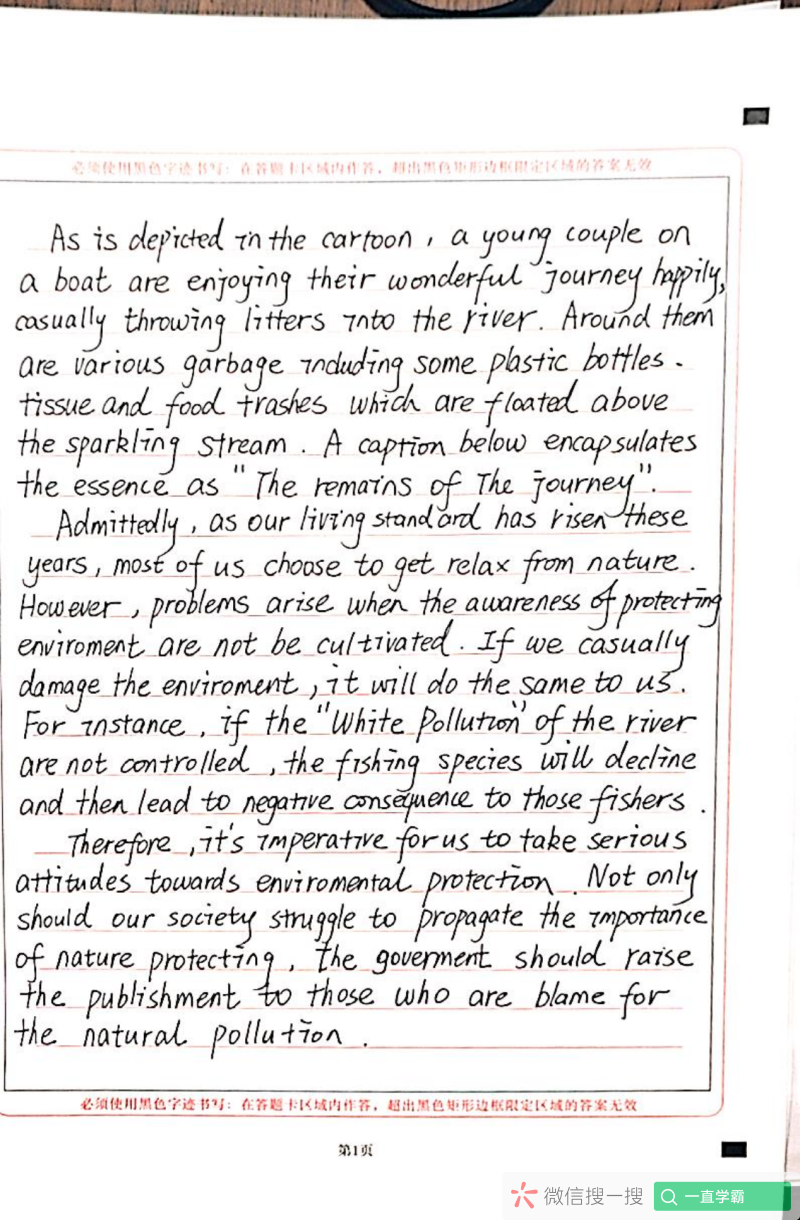 必须使用黑色字迹书写：在答题卡区域内作答，超出黑色矩形边框限定区域的答案无效
As is depicted in the cartoon, a young couple on
a boat are enjoying their wonderful journey happily,
casually throwing litters into the river. Around them
are various garbage including some plastic bottles.
tissue and food trashes which are floated above
the sparkling stream. A caption below encapsulates
the essence as "The remains of The journey".
Admittedly, as our living standard has risen these
years, most of us choose to get relax from nature.
However, problems arise when the awareness of protecting
enviroment are not be cultivated. If we casually
damage the enviroment, it will do the same to us.
For instance, if the "White Pollution" of the river
are not controlled, the fishing species will decline
and then lead to negative consequence to those fishers.
Therefore, it's imperative for us to take serious
attitudes towards enviromental protection. Not only
should our society struggle to propagate the importance
of nature protecting, the goverment should raise
the publishment to those who are blame for
the natural pollution.
必须使用黑色字迹书写：在答题卡区域内作答，超出黑色矩形边框限定区域的答案无效
第1页
微信搜一搜
一直学霸